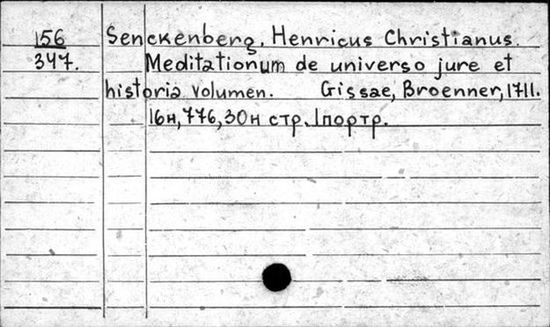 156 Senckenberg, Henricus Christianus.
347. Meditationum de universo jure et
historia volumen. Gissae, Broenner, 1711.
16н, 776, 30н стр. 1портр.